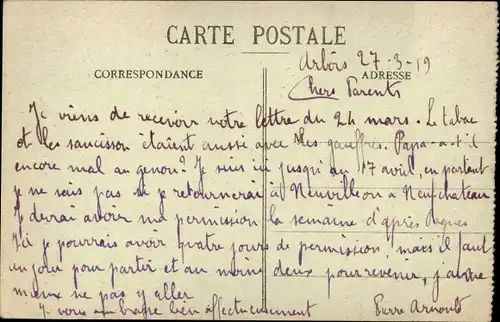 CARTE POSTALE
Arbois 27-3-19
CORRESPONDANCE
ADRESSE
Chers Parents
Je viens de recevoir votre lettre du 24 mars. Le tabac
et les saucisson étaient aussi avec les gauffres. Papa a-t-il
encore mal au genou? Je suis ici jusqu'au 17 avril, en partant
je ne sais pas si je retournerai à Neuvilleon à Neufchateau
Je devrai avoir ma permission la semaine d'après Paques
J'ai je pourrais avoir quatre jours de permission, mais il faut
un jour pour partir et au moins deux pour revenir, j'aime
mieux ne pas y aller
Je vous embrasse bien affectueusement
Pierre Arnould